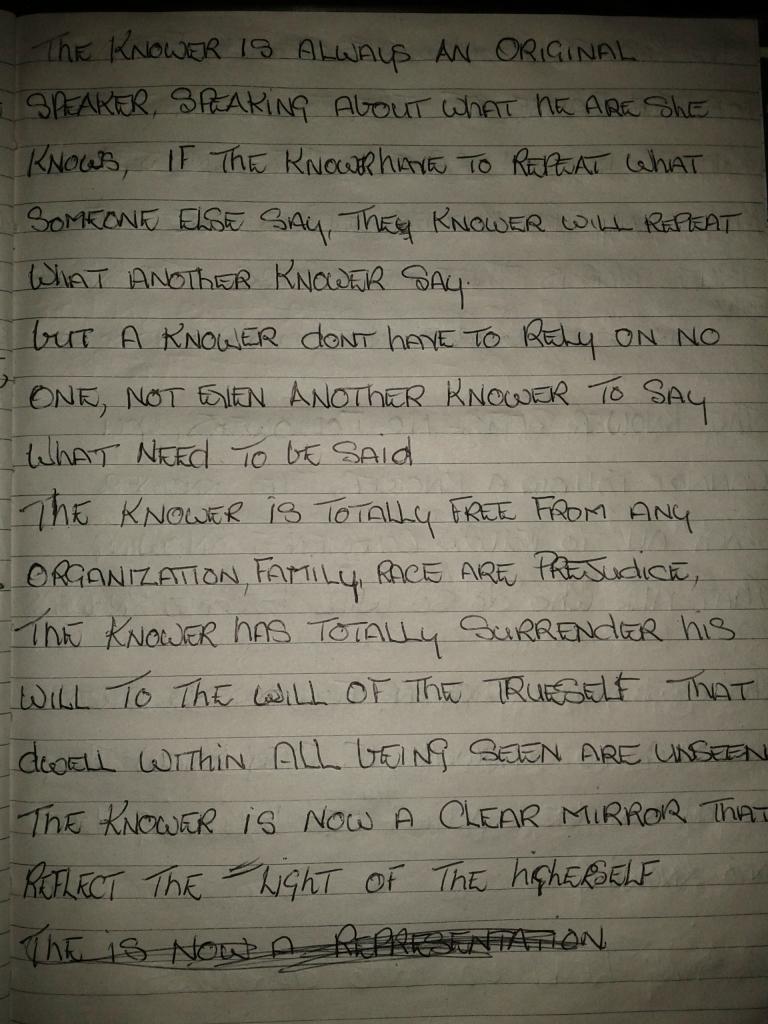 THE KNOWER IS ALWAYS AN ORIGINAL
SPEAKER, SPEAKING ABOUT WHAT HE ARE SHE
KNOWS, IF THE KNOWER HAVE TO REPEAT WHAT
SOMEONE ELSE SAY, THEY KNOWER WILL REPEAT
WHAT ANOTHER KNOWER SAY.
BUT A KNOWER DONT HAVE TO RELY ON NO
ONE, NOT EVEN ANOTHER KNOWER TO SAY
WHAT NEED TO BE SAID
THE KNOWER IS TOTALLY FREE FROM ANY
ORGANIZATION, FAMILY, RACE ARE PREJUDICE,
THE KNOWER HAS TOTALLY SURRENDER HIS
WILL TO THE WILL OF THE TRUESELF THAT
DWELL WITHIN ALL BEING SEEN ARE UNSEEN
THE KNOWER IS NOW A CLEAR MIRROR THAT
REFLECT THE LIGHT OF THE HIGHERSELF
THE IS NOW A REPRESENTATION